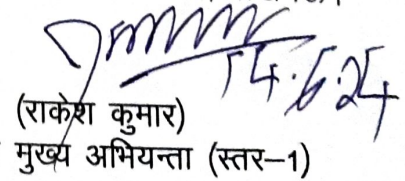 14.6.24
(राकेश कुमार)
मुख्य अभियन्ता (स्तर–1)